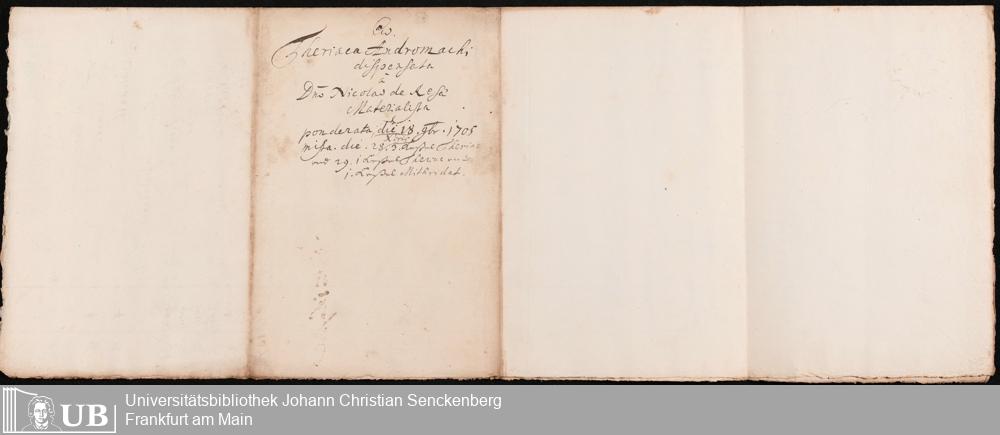 Theriaca Andromachi
dispensata
à
Dno Nicolao de Resa
Materialista
ponderata, die 18. 9br. 1705
mista. die. 28.
und 29. 1
1. Mithridat.
UB
Universitätsbibliothek Johann Christian Senckenberg
Frankfurt am Main